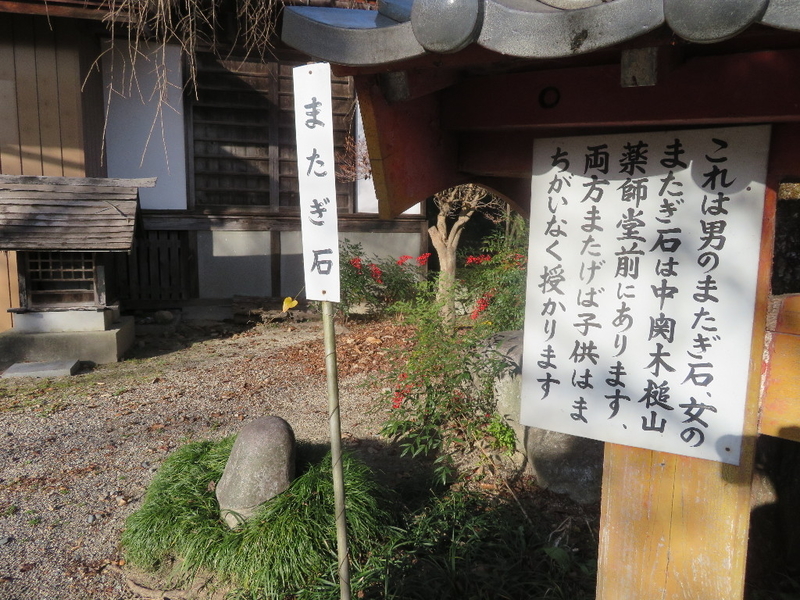 またぎ石
これは男のまたぎ石、女の
またぎ石は中関木槌山
薬師堂前にあります、
両方またげば子供はま
ちがいなく授かります